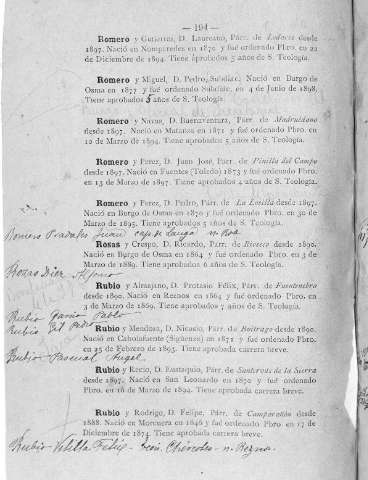 — 194 —
Romero y Gutierrez, D. Laureano, Párr. de Ledares desde
1897. Nació en Nomparedes en 1870 y fué ordenado Pbro. en 22
de Diciembre de 1894. Tiene aprobados 5 años de S. Teología.
Romero y Miguel, D. Pedro, Subdiác. Nació en Burgo de
Osma en 1877 y fué ordenado Subdiác. en 4 de Junio de 1898.
Tiene aprobados 5 años de S. Teología.
Romero y Navas, D. Buenaventura, Párr. de Madruédano
desde 1897. Nació en Matanza en 1871 y fué ordenado Pbro. en
10 de Marzo de 1894. Tiene aprobados 5 años de S. Teología.
Romero y Perez, D. Juan José, Párr. de Pinilla del Campo
desde 1897. Nació en Fuentes (Toledo) 1873 y fué ordenado Pbro.
en 13 de Marzo de 1897. Tiene aprobados 4 años de S. Teología.
Romero y Perez, D. Pedro, Párr. de La Losilla desde 1897.
Nació en Burgo de Osma en 1870 y fué ordenado Pbro. en 30 de
Marzo de 1895. Tiene aprobados 5 años de S. Teología.
Romero Juan
Rosas y Crespo, D. Ricardo, Párr. de Rioseco desde 1890.
Nació en Burgo de Osma en 1864 y fué ordenado Pbro. en 3 de
Marzo de 1889. Tiene aprobados 6 años de S. Teología.
Diez Alfonso
Rubio y Almajano, D. Protasio Félix, Párr. de Fuentetoba
desde 1890. Nació en Reznos en 1864 y fué ordenado Pbro. en
3 de Marzo de 1889. Tiene aprobados 7 años de S. Teología.
Rubio García Pablo
Rubio Gil Pedro
Rubio y Mendoza, D. Nicasio, Párr. de Buitrago desde 1890.
Nació en Cabolafuente (Sigüenza) en 1871 y fué ordenado Pbro.
en 25 de Febrero de 1895. Tiene aprobada carrera breve.
Rubio Pascual Angel
Rubio y Recio, D. Eustaquio, Párr. de Santervás de la Sierra
desde 1897. Nació en San Leonardo en 1870 y fué ordenado
Pbro. en 18 de Marzo de 1894. Tiene aprobada carrera breve.
Rubio y Rodrigo, D. Felipe, Párr. de Camparañón desde
1888. Nació en Morcuera en 1846 y fué ordenado Pbro. en 17 de
Diciembre de 1874. Tiene aprobada carrera breve.
Rubio Velilla Felix